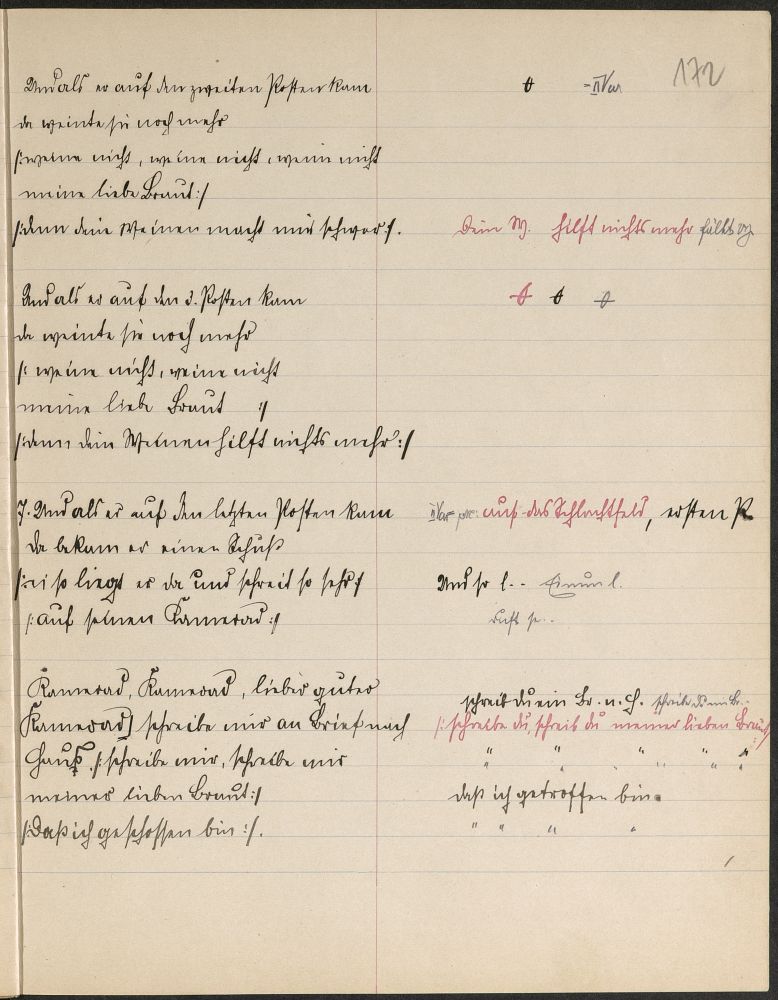 172
Und als er auf den zweiten Posten kam
ꝋ - II Var
da weinte sie noch mehr
/: weine nicht, weine nicht, weine nicht
meine liebe Braut :/
/: denn dein Weinen macht mir schwer :/.
Dein W. hilft nichts mehr fällt weg
Und als er auf den 3. Posten kam
da weinte sie noch mehr
/: weine nicht, weine nicht
meine liebe Braut :/
/: denn dein Weinen hilft nichts mehr :/
7. Und als er auf den letzten Posten kam
II Var auf das Schlachtfeld, ersten P.
Da bekam er einen Schuß
/: so liegt er da und schreit so sehr :/
Und so l. --
/: auf seinen Kamerad :/
ruft se..
Kamerad, Kamerad, lieber guter
schreib du ein Br. n. H. schreibe du ein Br..
Kamerad) schreibe mir an Brief nach
/: schreibe du, schreib du meiner lieben Braut :/
Hauß. /: schreibe mir, schreibe mir
" " " " "
meiner lieben Braut :/
daß ich getroffen bin.
/: Daß ich geschossen bin :/.
" " " "